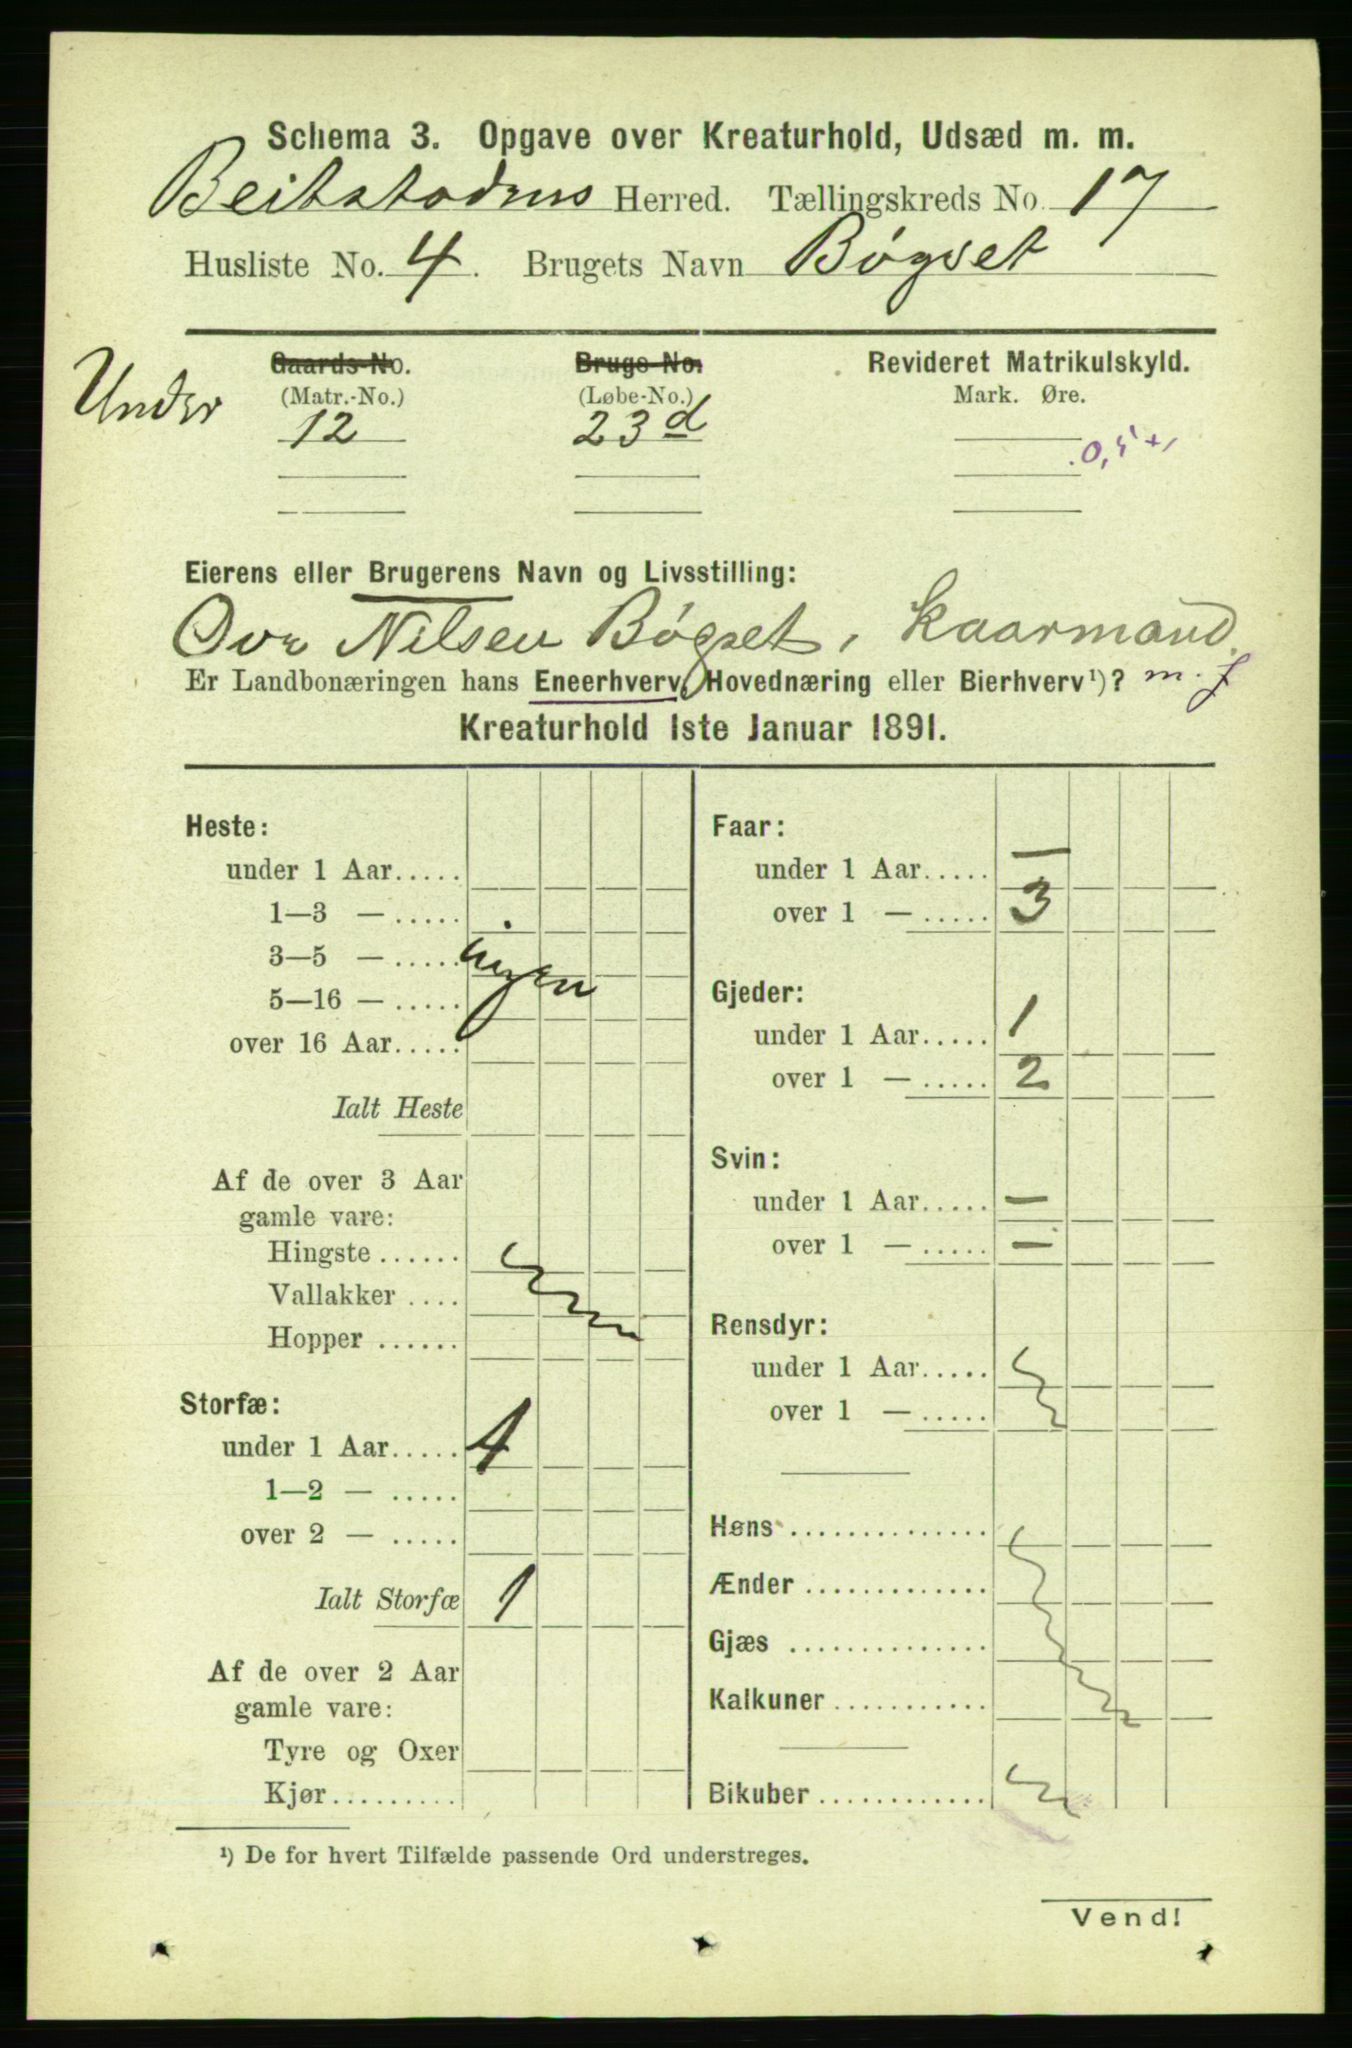 Schema 3. Opgave over Kreaturhold, Udsæd m. m.
Beitstadens Herred. Tællingskreds No. 17
Husliste No. 4. Brugets Navn Bøgset
Under
Gaards-No. Brugs-No. Revideret Matrikulskyld.
(Matr.-No.) (Løbe-No.) Mark. Øre.
12 23 d
Eierens eller Brugerens Navn og Livsstilling:
Nilsen Bøgset, Kaarmand.
Er Landbonæringen hans Eneerhverv, Hovednæring eller Bierhverv¹)? m. f
Kreaturhold 1ste Januar 1891.
Heste:
under 1 Aar.....
1—3 — .....
3—5 — ..... ingen
5—16 — .....
over 16 Aar.....
Ialt Heste
Af de over 3 Aar
gamle vare:
Hingste ......
Vallakker ....
Hopper ......
Storfæ:
under 1 Aar.....
1—2 — .....
over 2 — .....
Ialt Storfæ 1
Af de over 2 Aar
gamle vare:
Tyre og Oxer
Kjør.........
Faar:
under 1 Aar..... —
over 1 — ..... 3
Gjeder:
under 1 Aar..... 1
over 1 — ..... 2
Svin:
under 1 Aar..... —
over 1 — ..... —
Rensdyr:
under 1 Aar.....
over 1 — .....
Høns ..............
Ænder .............
Gjæs ..............
Kalkuner ...........
Bikuber ............
¹) De for hvert Tilfælde passende Ord understreges.
Vend!